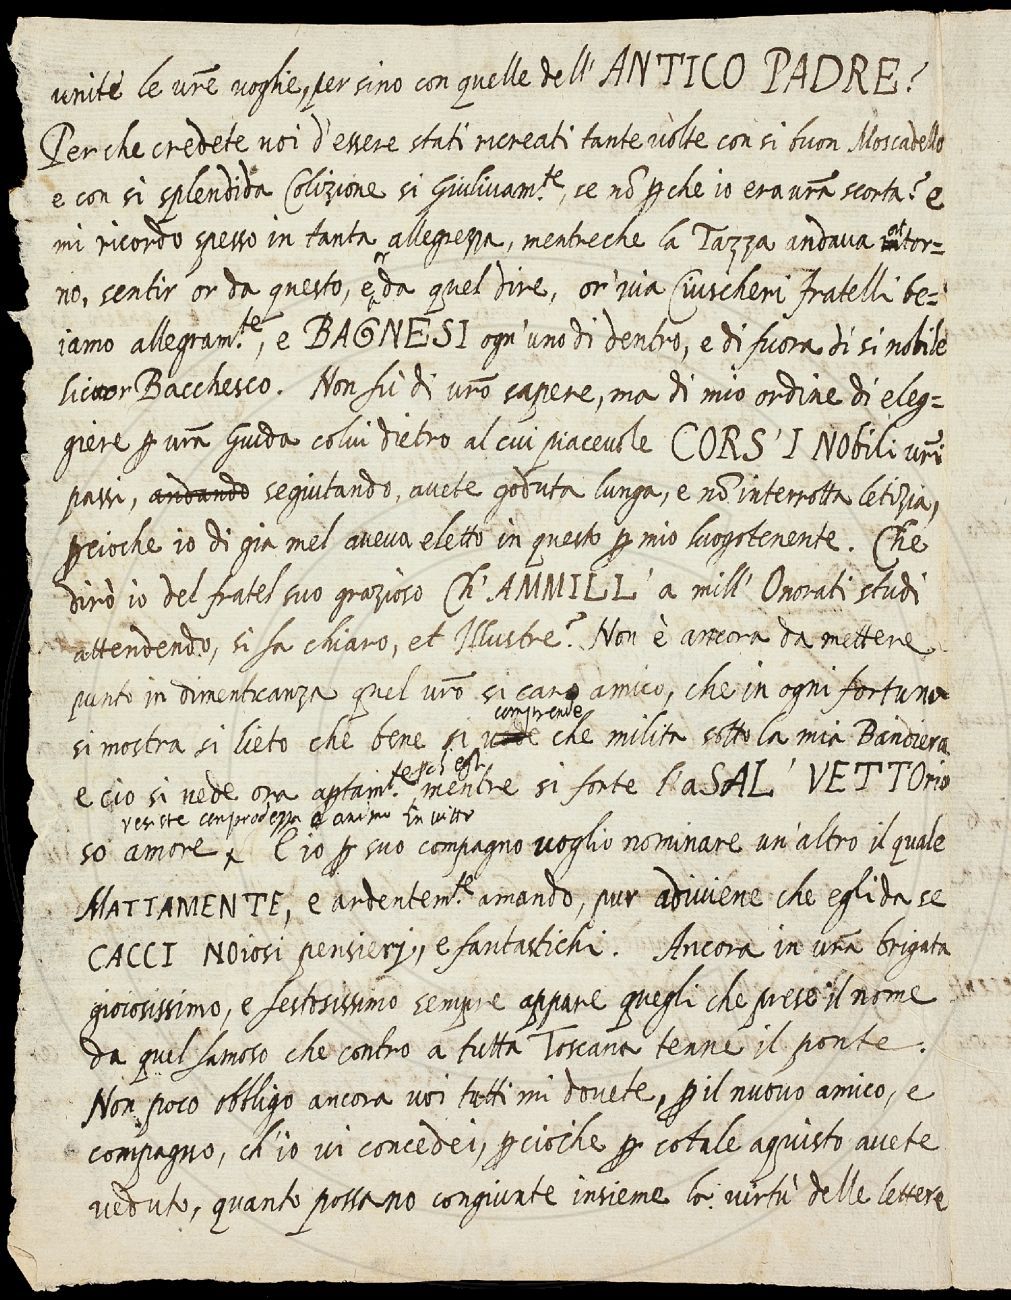 unite le vr̃e voglie, per sino con quelle dell' ANTICO PADRE?
Per che credete voi d'essere stati ricreati tante volte con si buon Moscadello
e con si splendida Colizione si Giulivam.te, se nõ ꝑche io era vr̃a scorta? e
mi ricordo spesso in tanta allegrezza, mentreche la Tazza andava attor=
no, sentir or da questo, e or da quel dire, or' via Ciuscheri fratelli be=
iamo allegram.te, e BAGNESI ogn'uno di dentro, e di fuora di si nobile
licuor Bacchesco. Non fù di vr̃o sapere, ma di mio ordine di eleg=
giere ꝑ vr̃a Guida colui dietro al cui piacevole CORS' I NObili vr̃i
passi, andando seguitando, avete goduta lunga, e nõ interrotta letizia,
ꝑcioche io di gia mel aveva eletto in questo ꝑ mio luogotenente. Che
dirò io del fratel suo grazioso Ch' AMMILL' a mill' Onorati studi
attendendo, si fa chiaro, et Illustre? Non è ancora da mettere
punto in dimenticanza quel vr̃o si caro amico, che in ogni fortuna
si mostra si lieto che bene si comprende che milita sotto la mia Bandiera
e cio si vede ora aptam.te mentre si forte l'aSAL' VETTOrio
resiste con prodezza d'animo Invitto
so amore. E io ꝑ suo compagno voglio nominare un'altro il quale
MATTAMENTE, e ardentem.te amando, pur adiviene che egli da se
CACCI NOiosi pensierj, e fantastichi. Ancora in vr̃a brigata
gioiosissimo, e festosissimo sempre appare quegli che prese il nome
da quel famoso che contro a tutta Toscana tenne il ponte.
Non poco obbligo ancora voi tutti mi dovete, ꝑ il nuovo amico, e
compagno, ch'io vi concedei, ꝑcioche ꝑ cotale aquisto avete
veduto, quanto possano congiunte insieme la virtù delle lettere